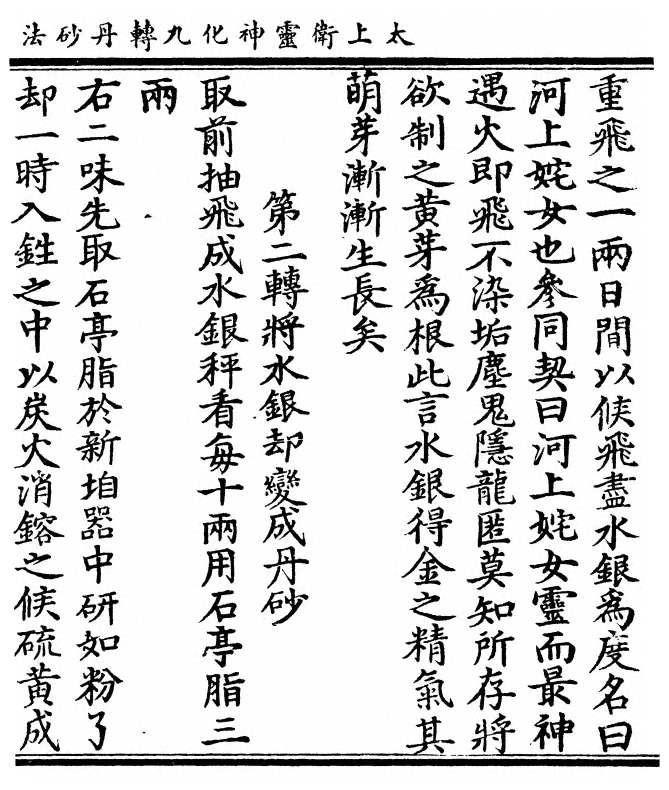 太上衛靈神化九轉丹砂法
重飛之一兩日間以候飛盡水銀爲度名曰
河上姹女也參同契曰河上姹女靈而最神
遇火即飛不染垢塵鬼隱龍匿莫知所存將
欲制之黃芽爲根此言水銀得金之精氣其
萌芽漸漸生長矣
第二轉將水銀却變成丹砂
取前抽飛成水銀秤看每十兩用石亭脂三
兩
右二味先取石亭脂於新垍器中研如粉了
却一時入鉎之中以炭火消鎔之候硫黃成